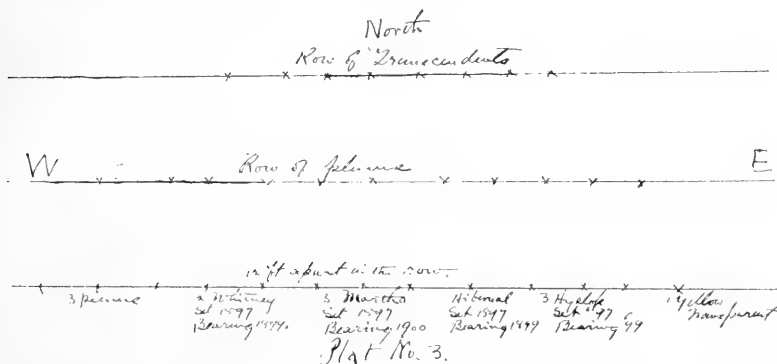 North
Row of Transcendents
W
Row of plums
E
ft apart in the row.
3 plums
2 Whitney
Set 1897
Bearing 1899.
3 Martha
Set 1897
Bearing 1900
Hibernal
Set 1897
Bearing 1899
3 Hyslop
Set '97
Bearing '99
1 Yellow
Transparent
Plat No. 3.